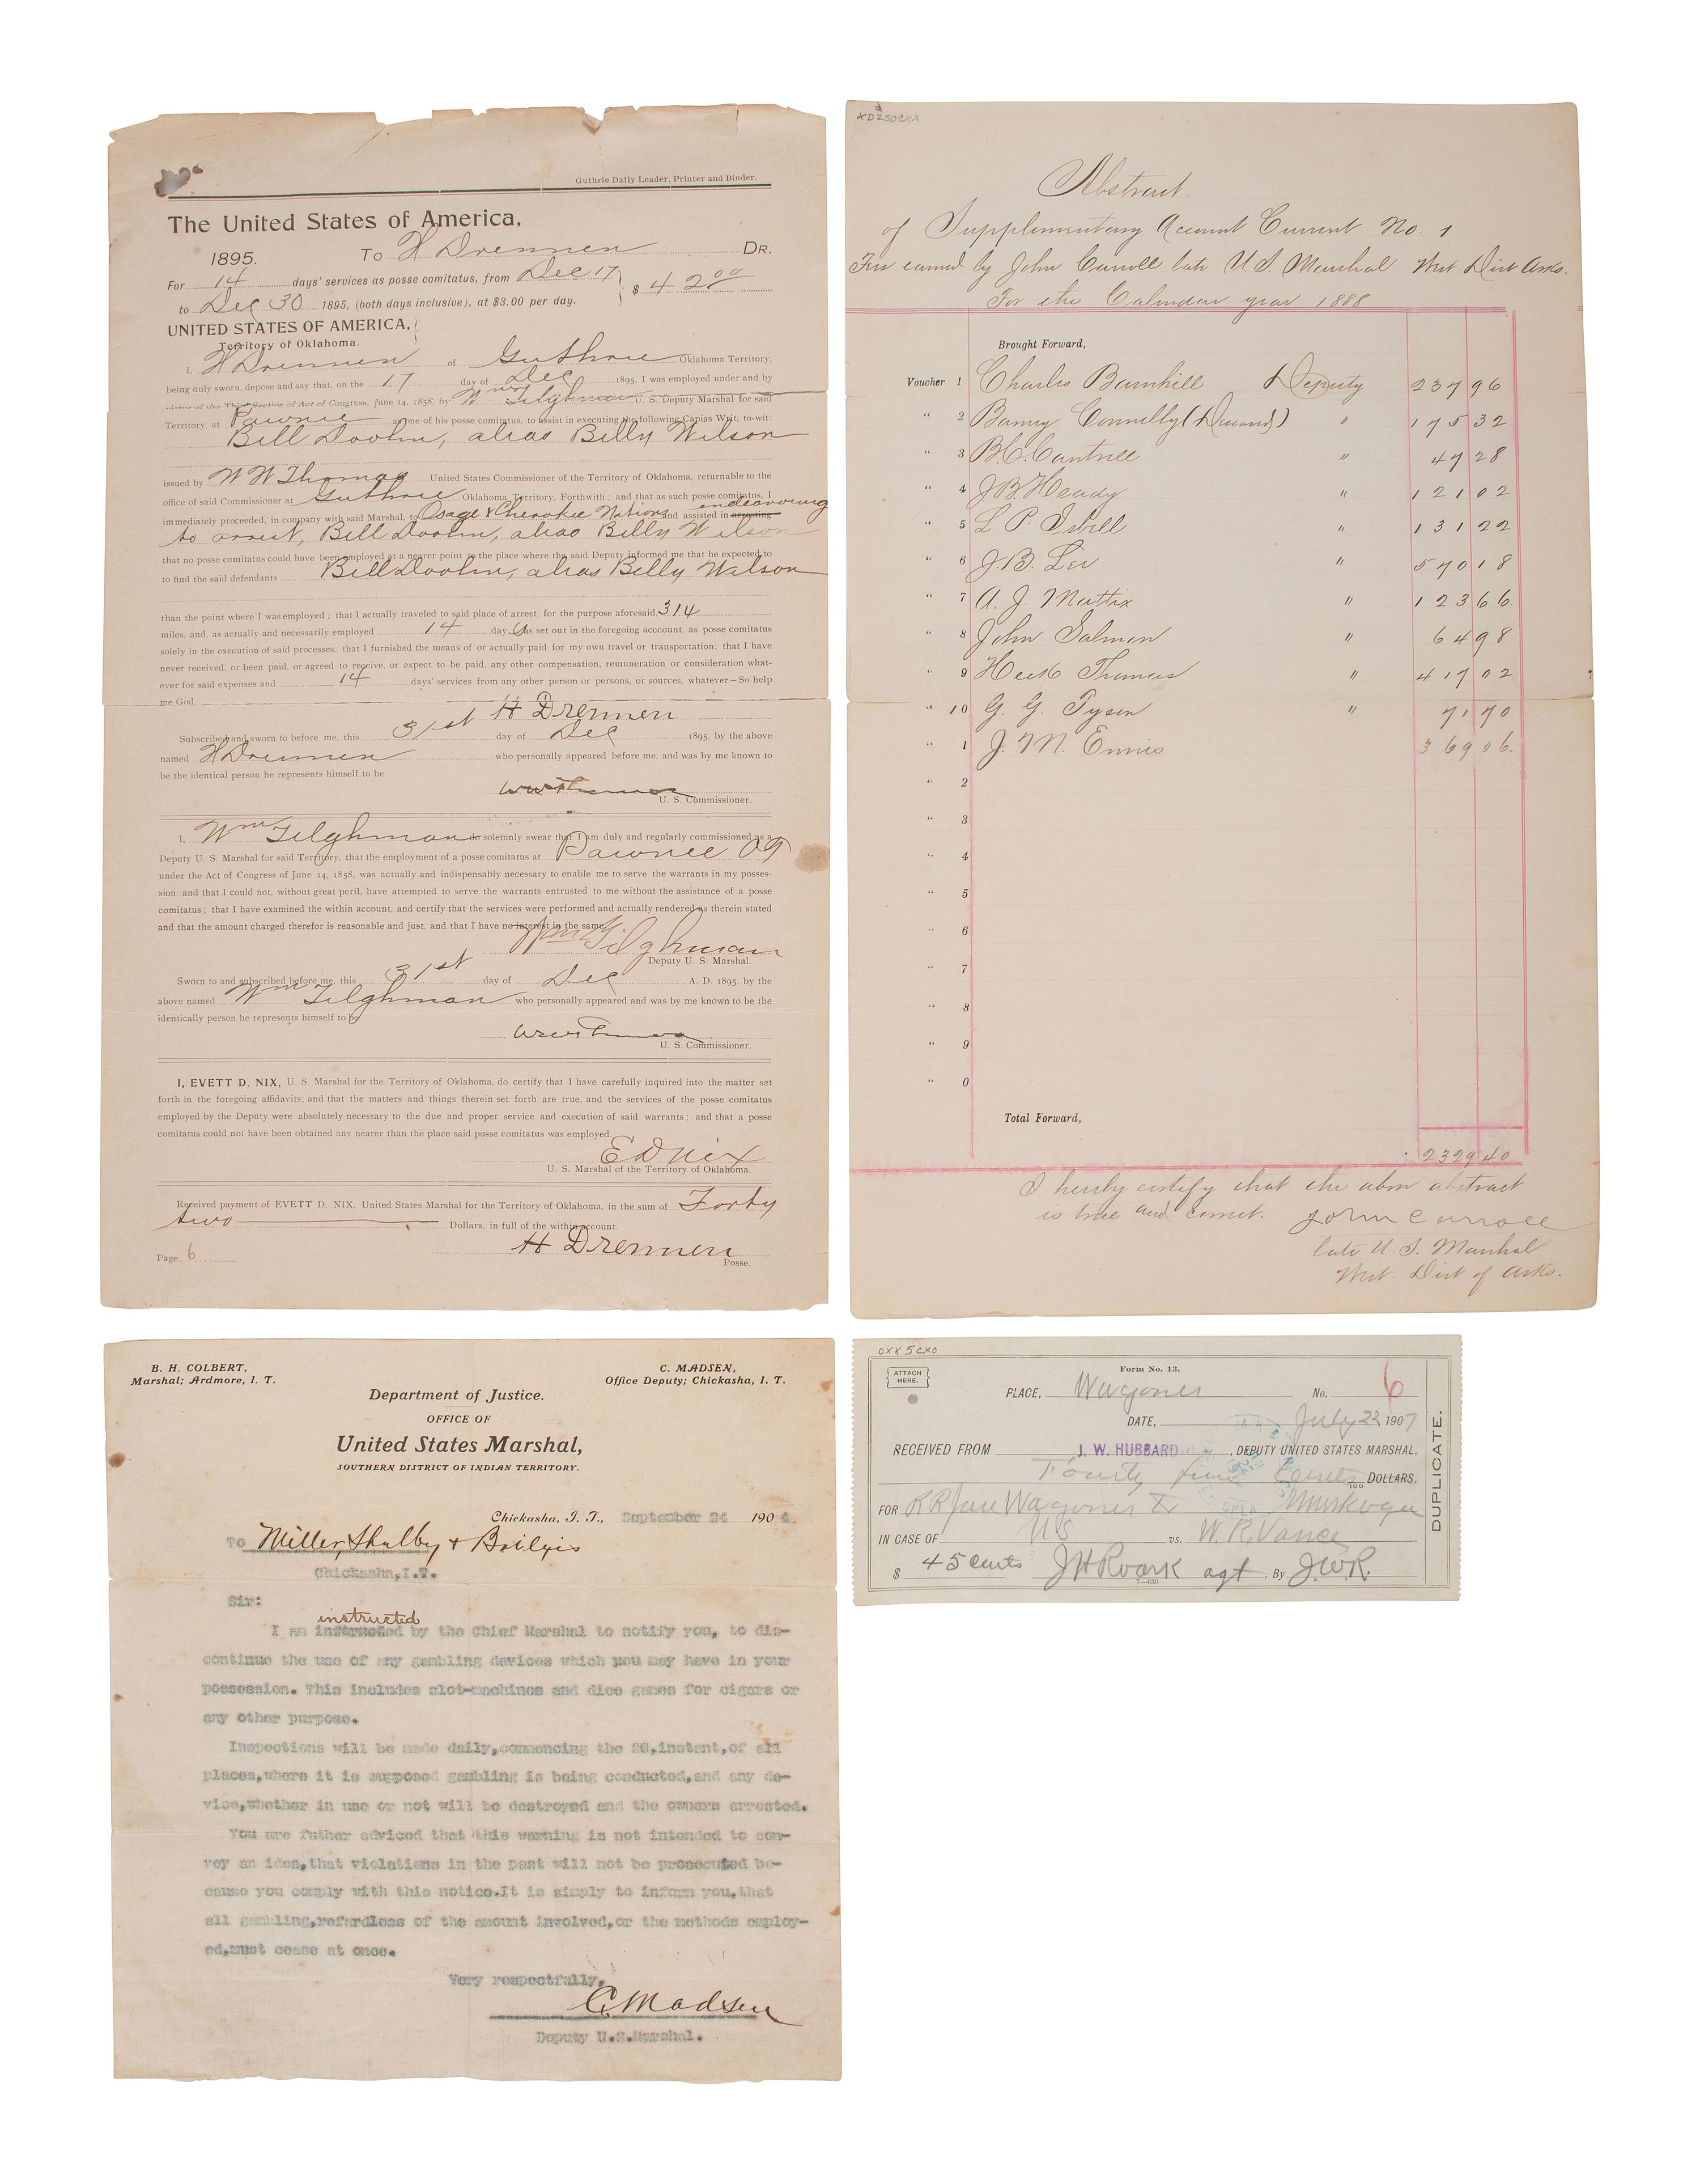 Guthrie Daily Leader, Printer and Binder.
The United States of America,
1895. To H Drennen DR.
For 14 days' services as posse comitatus, from Dec 17
to Dec 30 1895, (both days inclusive), at $3.00 per day. $ 42 00
UNITED STATES OF AMERICA,
Territory of Oklahoma.
I, H Drennen of Guthrie Oklahoma Territory,
being duly sworn, depose and say that, on the 17 day of Dec 1895, I was employed under and by
virtue of the Third Section of Act of Congress, June 14, 1858, by Wm Tilghman U. S. Deputy Marshal for said
Territory, at Pawnee as one of his posse comitatus, to assist in executing the following Capias Writ, to-wit:
Bill Doolin, alias Billy Wilson
issued by W W Thomas United States Commissioner of the Territory of Oklahoma, returnable to the
office of said Commissioner at Guthrie Oklahoma Territory, Forthwith; and that as such posse comitatus, I
immediately proceeded, in company with said Marshal, to Osage & Cherokee Nations and assisted in arresting endeavoring
to arrest, Bill Doolin, alias Billy Wilson
that no posse comitatus could have been employed at a nearer point to the place where the said Deputy informed me that he expected to
to find the said defendants Bill Doolin, alias Billy Wilson
than the point where I was employed; that I actually traveled to said place of arrest, for the purpose aforesaid, 314
miles, and, as actually and necessarily employed 14 days as set out in the foregoing acccount, as posse comitatus
solely in the execution of said processes; that I furnished the means of or actually paid for my own travel or transportation; that I have
never received, or been paid, or agreed to receive, or expect to be paid, any other compensation, remuneration or consideration what-
ever for said expenses and 14 days' services from any other person or persons, or sources, whatever—So help
me God.
H Drennen
Subscribed and sworn to before me, this 31st day of Dec 1895, by the above
named H Drennen who personally appeared before me, and was by me known to
be the identical person he represents himself to be.
W W Thomas
U. S. Commissioner.
I, Wm Tilghman do solemnly swear that I am duly and regularly commissioned as a
Deputy U. S. Marshal for said Territory, that the employment of a posse comitatus at Pawnee OT
under the Act of Congress of June 14, 1858, was actually and indispensably necessary to enable me to serve the warrants in my posses-
sion, and that I could not, without great peril, have attempted to serve the warrants entrusted to me without the assistance of a posse
comitatus; that I have examined the within account, and certify that the services were performed and actually rendered as therein stated
and that the amount charged therefor is reasonable and just, and that I have no interest in the same.
Wm Tilghman
Deputy U. S. Marshal.
Sworn to and subscribed before me, this 31st day of Dec A. D. 1895, by the
above named Wm Tilghman who personally appeared and was by me known to be the
identically person he represents himself to be.
W W Thomas
U. S. Commissioner.
I, EVETT D. NIX, U. S. Marshal for the Territory of Oklahoma, do certify that I have carefully inquired into the matter set
forth in the foregoing affidavits; and that the matters and things therein set forth are true, and the services of the posse comitatus
employed by the Deputy were absolutely necessary to the due and proper service and execution of said warrants; and that a posse
comitatus could not have been obtained any nearer than the place said posse comitatus was employed.
E D Nix
U. S. Marshal of the Territory of Oklahoma.
Received payment of EVETT D. NIX, United States Marshal for the Territory of Oklahoma, in the sum of Forty
two Dollars, in full of the within account.
H Drennen
Posse.
Page 6
Abstract.
of Supplementary Account Current No. 1
Fees earned by John Carroll late U S. Marshal West Dist Arks.
For the Calendar year 1888
Brought Forward,
Voucher 1 Charles Barnhill Deputy 237 96
" 2 Barney Connelly (Deceased) " 175 32
" 3 B.C. Cantrell " 47 28
" 4 J B Heady " 121 02
" 5 L. P. Isbell " 131 22
" 6 J. B. Lee " 570 18
" 7 A. J. Mattix " 123 66
" 8 John Salmon " 64 98
" 9 Heck Thomas " 417 02
" 10 G. G. Tyson " 71 70
" 1 J. M. Ennis 369 06
" 2
" 3
" 4
" 5
" 6
" 7
" 8
" 9
" 0
Total Forward,
2329 40
I hereby certify that the above abstract
is true and correct. John Carroll
late U. S. Marshal
West. Dist of Arks.
B. H. COLBERT,
Marshal; Ardmore, I. T.
C. MADSEN,
Office Deputy; Chickasha, I. T.
Department of Justice.
OFFICE OF
United States Marshal,
SOUTHERN DISTRICT OF INDIAN TERRITORY.
Chickasha, I. T., September 24 1904.
To Miller, Shulby &
Chickasha,I.T.
Sir:
instructed
I am instructed by the Chief Marshal to notify you, to dis-
continue the use of any gambling devices which you may have in your
possession. This includes slot-machines and dice games for cigars or
any other purpose.
Inspections will be made daily,commencing the 26,instant,of all
places,where it is supposed gambling is being conducted,and any de-
vice,whether in use or not will be destroyed and the owners arrested.
You are futher adviced that this warning is not intended to con-
vey an idea,that violations in the past will not be prosecuted be-
cause you comply with this notice.It is simply to inform you,that
all gambling,refardless of the amount involved,or the methods employ-
ed,must cease at once.
Very respectfully,
C. Madsen
Deputy U.S.Marshal.
OXX5CXO
ATTACH HERE.
Form No. 13.
PLACE, Wagoner No. 6
DATE, July 22 1907
RECEIVED FROM J. W. HUBBARD, DEPUTY UNITED STATES MARSHAL,
Fourty five Cents 100 DOLLARS,
FOR R R fare Wagoner to Muskogee
IN CASE OF US vs. W. R. Vance
$ 45 cents J H Roark agt. By J.W.R.
7—630
DUPLICATE.